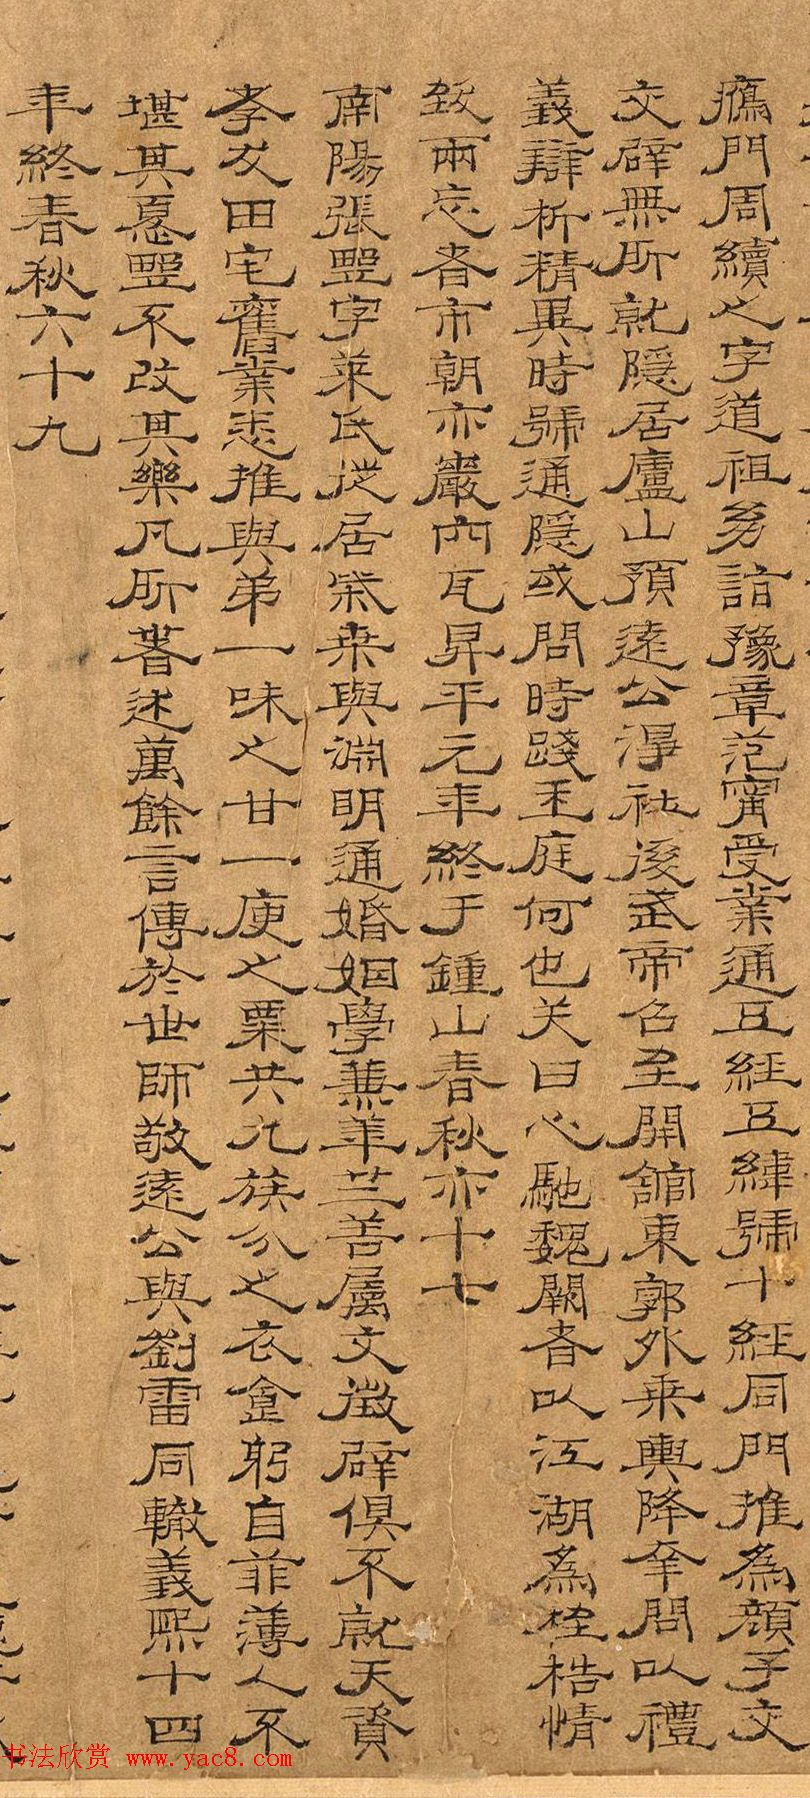 鴈門周續之字道祖務詣豫章范甯受業通五經五緯號十經同門推為顏子交
交辟無所就隱居廬山預遠公淨社後武帝召至開館東郭外乘輿降幸問以禮
義辯析精異時號通隱或問時踐王庭何也笑曰心馳魏闕者以江湖為桎梏情
致兩忘者市朝亦巖穴耳昇平元年終于鍾山春秋亦十七
南陽張野字萊民徙居柴桑與淵明通婚姻學兼華竺善屬文徵辟俱不就天資
孝友田宅舊業悉推與弟一味之甘一庾之粟共九族分之衣食躬自菲薄人不
堪其憂野不改其樂凡所著述萬餘言傳於世師敬遠公與劉雷同轍義熙十四
年終春秋六十九
书法欣赏 www.yac8.com